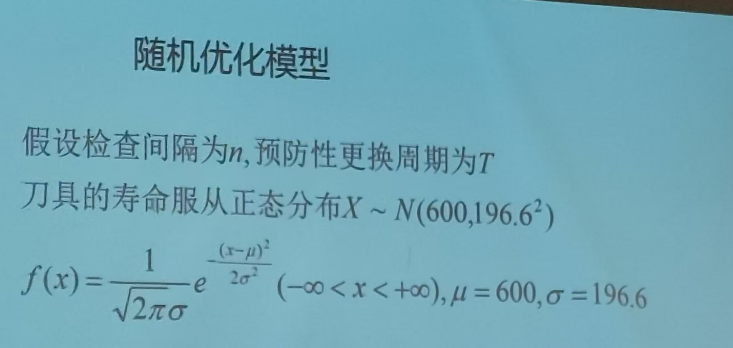 随机优化模型
假设检查间隔为n,预防性更换周期为T
刀具的寿命服从正态分布X ~ N(600,196.6²)
f(x)=\frac{1}{\sqrt{2π}σ}e^{-\frac{(x-μ)²}{2σ²}}(-∞<x<+∞),μ=600,σ=196.6